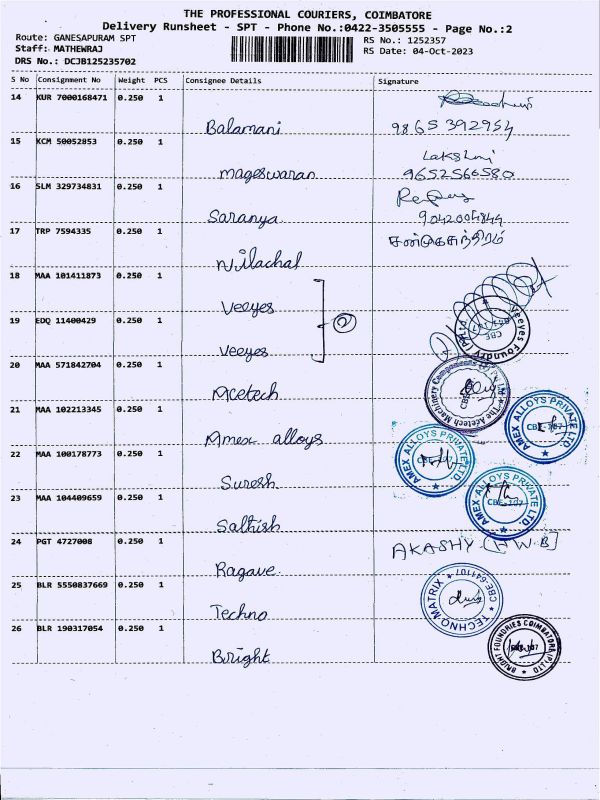 THE PROFESSIONAL COURIERS, COIMBATORE
Delivery Runsheet - SPT - Phone No.:0422-3505555 - Page No.:2
Route: GANESAPURAM SPT
RS No.: 1252357
Staff: MATHEWRAJ
RS Date: 04-Oct-2023
DRS No.: DCJB125235702
S No Consignment No Weight PCS Consignee Details Signature
14 KUR 7000168471 0.250 1
Balamani 9865392954
15 KCM 50052853 0.250 1 Lakshmi
Mageswaran 9652566580
16 SLM 329734831 0.250 1
Saranya
17 TRP 7594335 0.250 1
Nilachal
18 MAA 101411873 0.250 1
Veeyes
2
19 EDQ 11400429 0.250 1
Veeyes
Veeyes Foundry (P) Ltd.
CBE
20 MAA 571842704 0.250 1
Acetech
The Acetech Machinery Components
21 MAA 102213345 0.250 1
Amex alloys
AMEX ALLOYS PRIVATE LTD.
CBE-107
22 MAA 100178773 0.250 1
Suresh
AMEX ALLOYS PRIVATE LTD.
CBE-107
23 MAA 104409659 0.250 1
Sathish
AMEX ALLOYS PRIVATE LTD.
CBE-107
24 PGT 4727008 0.250 1
AKASHY [HWB]
Ragave
25 BLR 5550837669 0.250 1
Techno
TECHNO MATRIX
CBE-641107
26 BLR 190317054 0.250 1
Bright
BRIGHT FOUNDRIES COIMBATORE (P) LTD